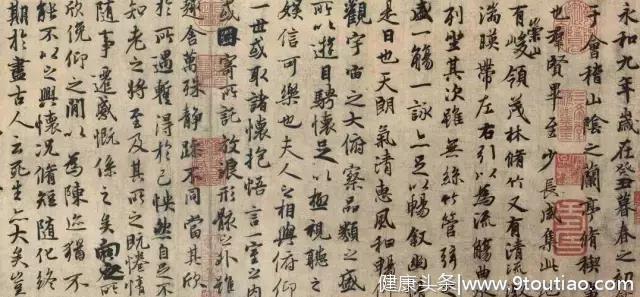 永和九年歲在癸丑暮春之初
于會稽山陰之蘭亭脩稧
也羣賢畢至少長咸集此
有崇山峻領茂林脩竹又有清流
湍暎帶左右引以為流觴曲
列坐其次雖無絲竹管弦
盛一觴一詠亦足以暢叙幽
是日也天朗氣清惠風和暢
觀宇宙之大俯察品類之盛
所以遊目騁懷足以極視聽之
娛信可樂也夫人之相與俯仰
一世或取諸懷抱悟言一室之內
或因寄所託放浪形骸之外雖
趣舍萬殊靜躁不同當其欣
於所遇暫得於己怏然自足不
知老之將至及其所之既惓情
隨事遷感慨係之矣向之所
欣俛仰之閒以為陳迹猶不
能不以之興懷況脩短隨化終
期於盡古人云死生亦大矣豈
健康头条|www.9toutiao.com